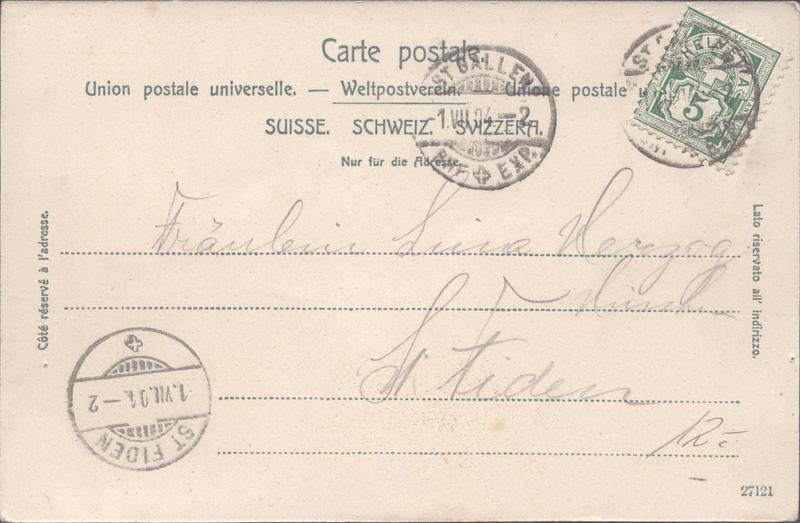 Carte postale
Union postale universelle. — Weltpostverein. — Unione postale
SUISSE. SCHWEIZ. SVIZZERA.
Nur für die Adresse.
ST. GALLEN
-1.VII.04.-2
BRF. EXP.
HELVETIA
FRANCO
5
Côté réservé à l'adresse.
Lato riservato all' indirizzo.
Fräulein Lina Herzog
St Fiden
-1.VII.04.-2
ST. FIDEN
27121